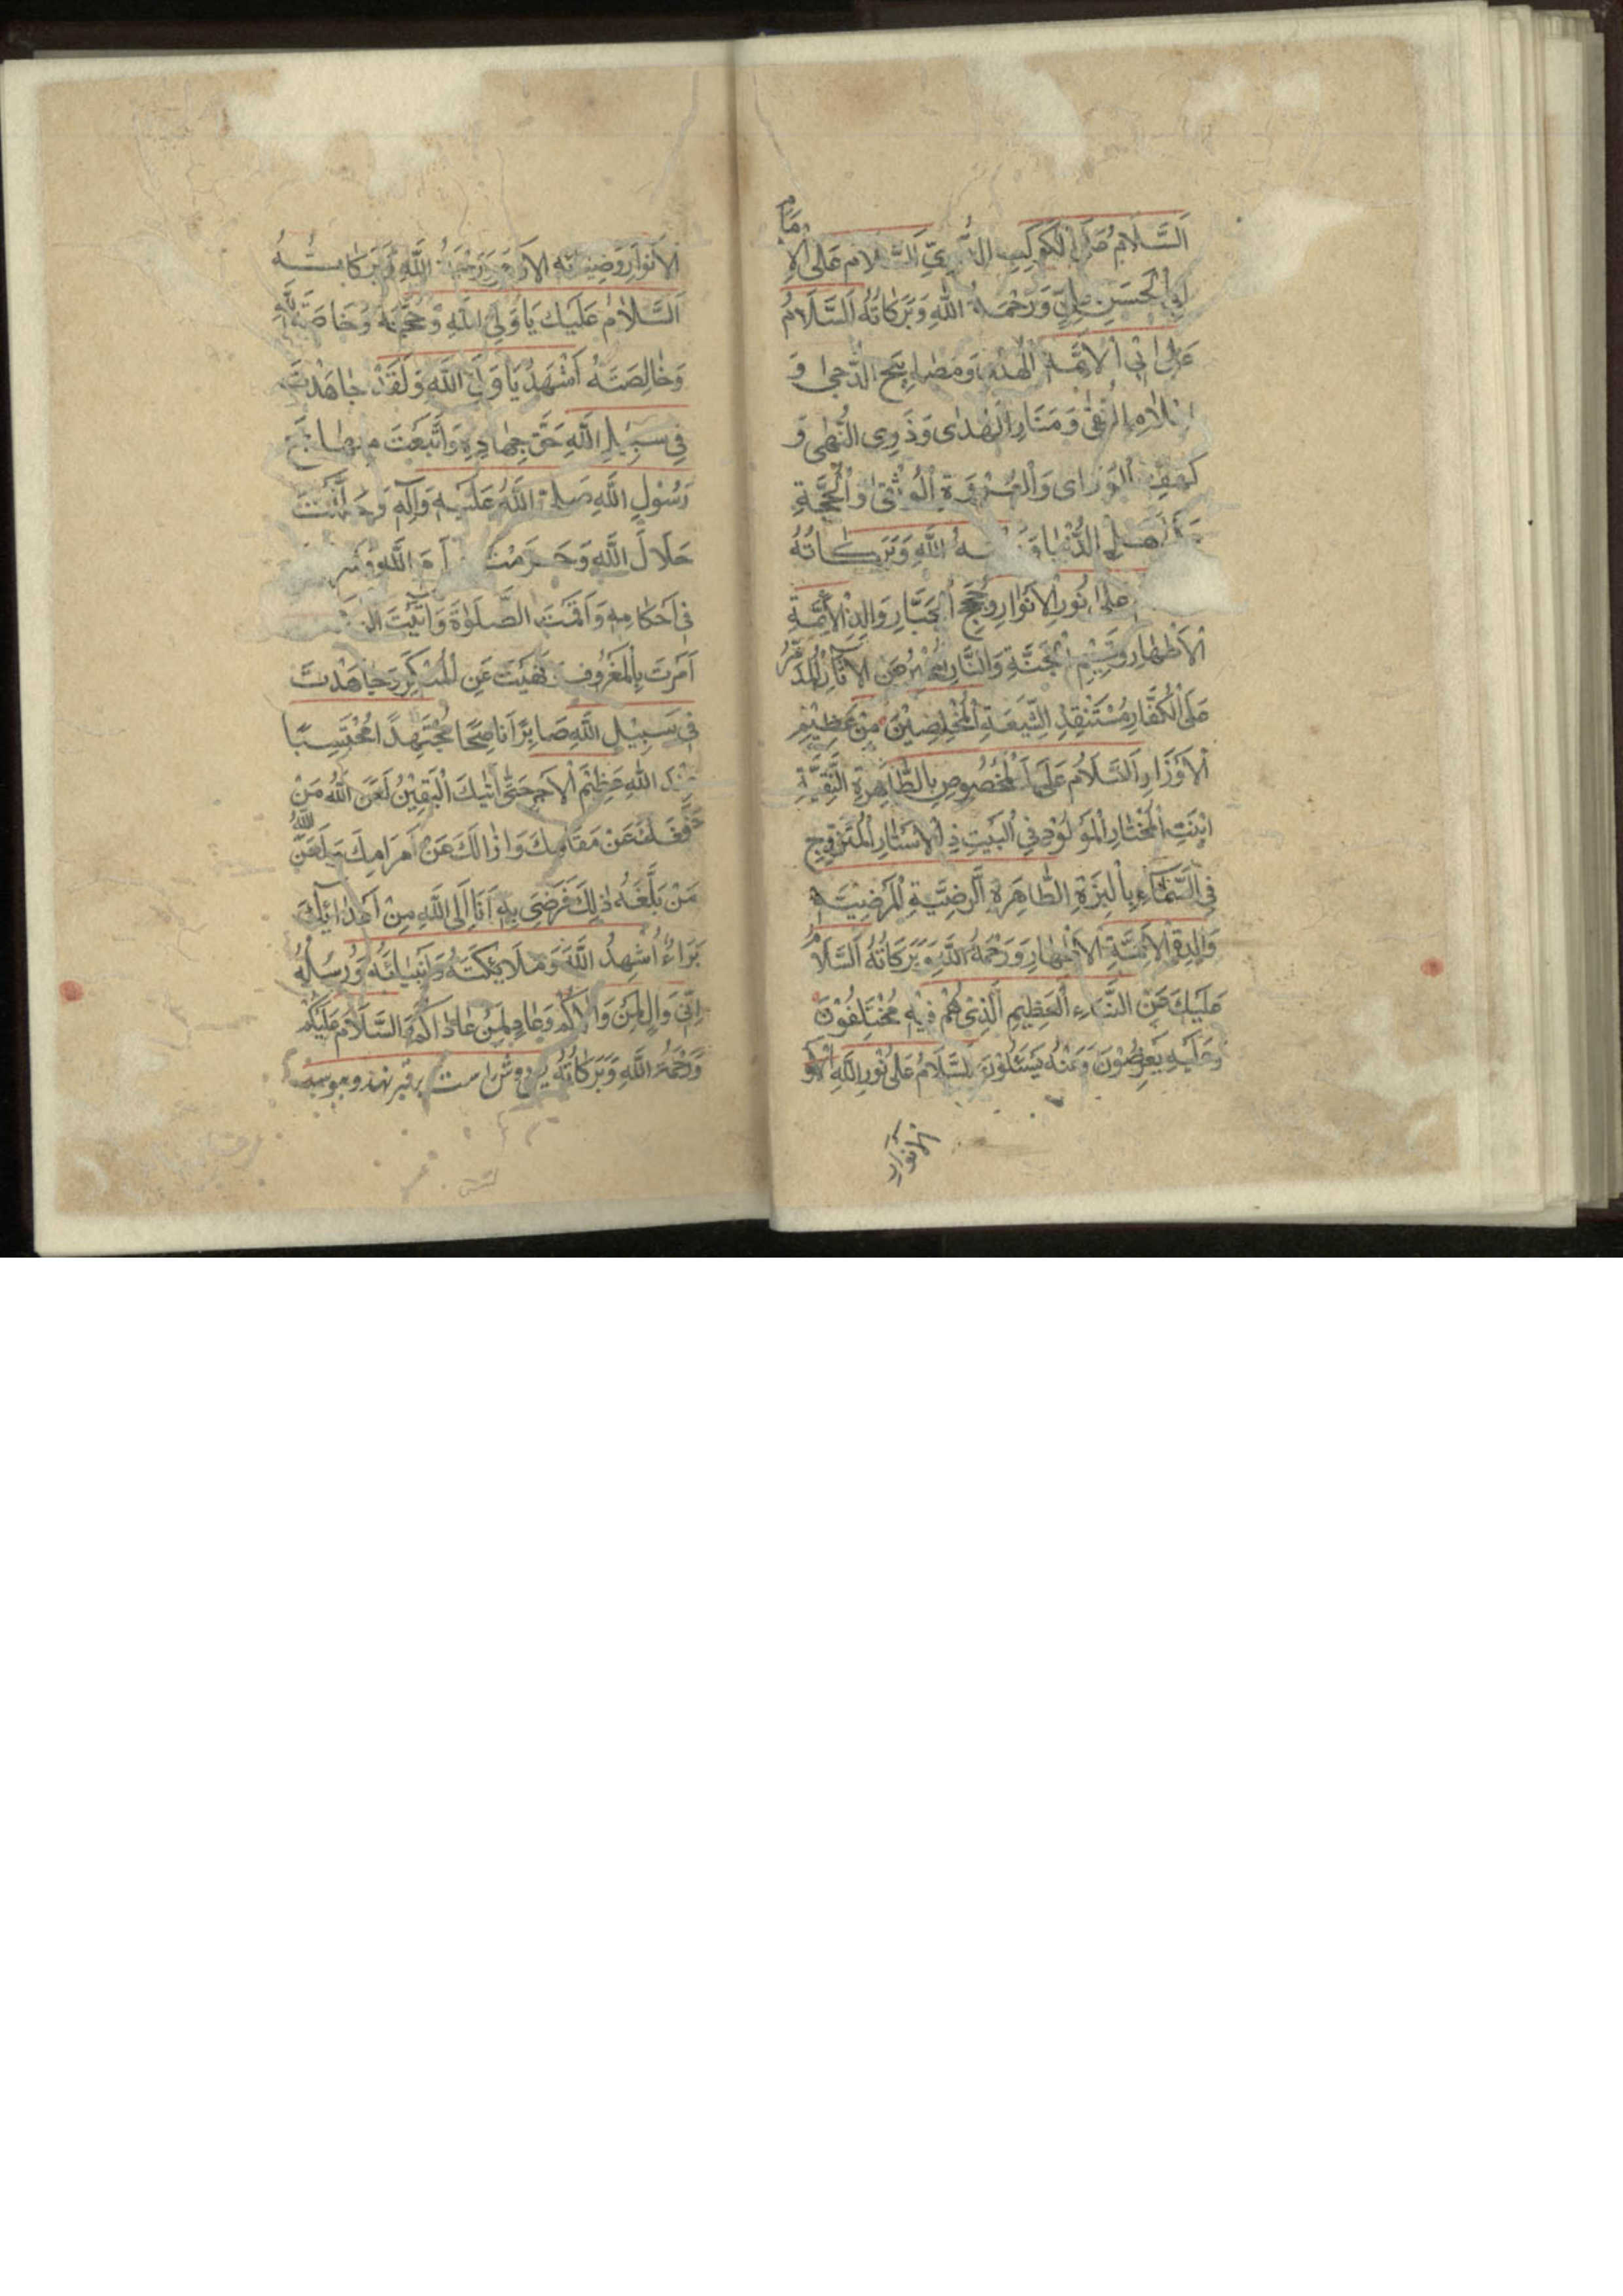 اَلسَّلَامُ عَلَى الْكَوْكَبِ الدُّرِّيِّ اَلسَّلَامُ عَلَى الْاِمَامِ
اَبِي الْحَسَنِ عَلِيٍّ وَرَحْمَةُ اللّٰهِ وَبَرَكَاتُهُ اَلسَّلَامُ
عَلٰى اَئِمَّةِ الْهُدٰى وَمَصَابِيحِ الدُّجٰى وَ
اَعْلَامِ التُّقٰى وَمَنَارِ الْهُدٰى وَذَوِي النُّهٰى وَ
كَهْفِ الْوَرٰى وَالْعُرْوَةِ الْوُثْقٰى وَالْحُجَّةِ
عَلٰى اَهْلِ الدُّنْيَا وَرَحْمَةُ اللّٰهِ وَبَرَكَاتُهُ
عَلٰى نُورِ الْاَنْوَارِ وَحُجَجِ الْجَبَّارِ وَالِدِ الْاَئِمَّةِ
الْاَطْهَارِ وَقَسِيمِ الْجَنَّةِ وَالنَّارِ مُخْبِرٌ عَنِ الْاٰثَارِ الْمُدَمِّرُ
عَلَى الْكُفَّارِ مُسْتَنْقِذِ الشِّيعَةِ الْمُخْلِصِيْنَ مِنْ عَظِيْمِ
الْاَوْزَارِ اَلسَّلَامُ عَلَى الْمَخْصُوصِ بِالطَّاهِرَةِ التَّقِيَّةِ
ابْنَتِ الْمُخْتَارِ الْمَوْلُوْدِ فِي الْبَيْتِ ذِي الْاَسْتَارِ الْمُتَزَوِّجِ
فِي السَّمَاءِ بِالْبَرَّةِ الطَّاهِرَةِ الرَّضِيَّةِ الْمَرْضِيَّةِ
وَالِدَةِ الْاَئِمَّةِ الْاَطْهَارِ وَرَحْمَةُ اللّٰهِ وَبَرَكَاتُهُ اَلسَّلَامُ
عَلَيْكَ عَنِ النَّبَاءِ الْعَظِيمِ الَّذِي هُمْ فِيْهِ مُخْتَلِفُوْنَ
وَعَلَيْهِ يَعْرِضُوْنَ وَعَنْهُ يَسْئَلُوْنَ اَلسَّلَامُ عَلٰى نُوْرِ اللّٰهِ
الانوار
الْاَنْوَارِ وَضِيَائِهِ الْاَزْهَرِ وَرَحْمَةُ اللّٰهِ وَبَرَكَاتُهُ
اَلسَّلَامُ عَلَيْكَ يَا وَلِيَّ اللّٰهِ وَحُجَّتَهُ وَخَاصَّةَ اللّٰهِ
وَخَالِصَتَهُ اَشْهَدُ يَا وَلِيَّ اللّٰهِ وَلَقَدْ جَاهَدْتَ
فِي سَبِيلِ اللّٰهِ حَقَّ جِهَادِهِ وَاتَّبَعْتَ مِنْهَاجَ
رَسُوْلِ اللّٰهِ صَلَّى اللّٰهُ عَلَيْهِ وَاٰلِهِ وَحَلَّلْتَ
حَلَالَ اللّٰهِ وَحَرَّمْتَ حَرَامَ اللّٰهِ وَشَرَعْتَ
فِي اَحْكَامِهِ وَاَقَمْتَ الصَّلٰوةَ وَاٰتَيْتَ
اَمَرْتَ بِالْمَعْرُوفِ وَنَهَيْتَ عَنِ الْمُنْكَرِ وَجَاهَدْتَ
فِي سَبِيْلِ اللّٰهِ صَابِرًا نَاصِحًا مُجْتَهِدًا مُحْتَسِبًا
عِنْدَ اللّٰهِ عَظِيْمَ الْاَجْرِ حَتّٰى اَتٰيكَ الْيَقِيْنُ لَعَنَ اللّٰهُ مَنْ
دَفَعَكَ عَنْ مَقَامِكَ وَاَزَالَكَ عَنْ مَرَامِكَ وَلَعَنَ اللّٰهُ
مَنْ بَلَغَهُ ذٰلِكَ فَرَضِيَ بِهِ اَنَا اِلَى اللّٰهِ مِنْ اَعْدَائِكَ
بَرَاءٌ اُشْهِدُ اللّٰهَ وَمَلَائِكَتَهُ وَاَنْبِيَائَهُ وَرُسُلَهُ
اِنِّي وَالٍ لِمَنْ وَالَاكُمْ وَعَادٍ لِمَنْ عَادَاكُمْ اَلسَّلَامُ عَلَيْكُمْ
وَرَحْمَةُ اللّٰهِ وَبَرَكَاتُهُ پس دوش راست بر قبر نهد و ببوسد